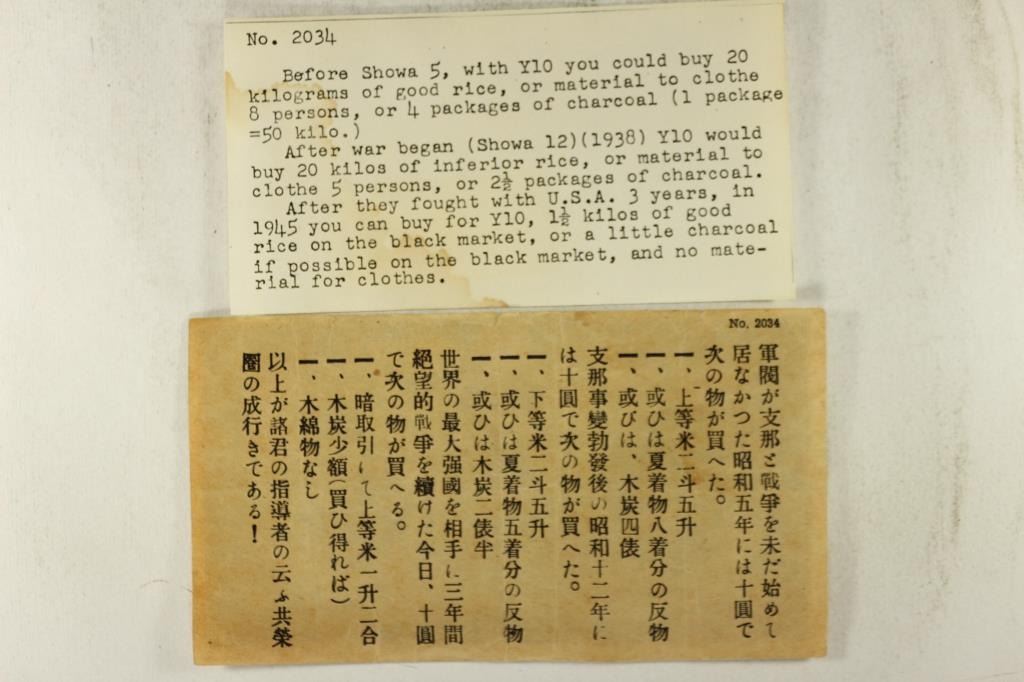 No. 2034
Before Showa 5, with Y10 you could buy 20
kilograms of good rice, or material to clothe
8 persons, or 4 packages of charcoal (1 package
=50 kilo.)
After war began (Showa 12)(1938) Y10 would
buy 20 kilos of inferior rice, or material to
clothe 5 persons, or 2½ packages of charcoal.
After they fought with U.S.A. 3 years, in
1945 you can buy for Y10, 1½ kilos of good
rice on the black market, or a little charcoal
if possible on the black market, and no mate-
rial for clothes.
No. 2034
軍閥が支那と戰爭を未だ始めて
居なかつた昭和五年には十圓で
次の物が買へた。
一、上等米二斗五升
一、或ひは夏着物八着分の反物
一、或びは、木炭四俵
支那事變勃發後の昭和十二年に
は十圓で次の物が買へた。
一、下等米二斗五升
一、或ひは夏着物五着分の反物
一、或ひは木炭二俵半
世界の最大强國を相手に三年間
絕望的戰爭を續けた今日、十圓
で次の物が買へる。
一、暗取引にて上等米一升二合
一、木炭少額(買ひ得れば)
一、木綿物なし
以上が諸君の指導者の云ふ共榮
圈の成行きである!